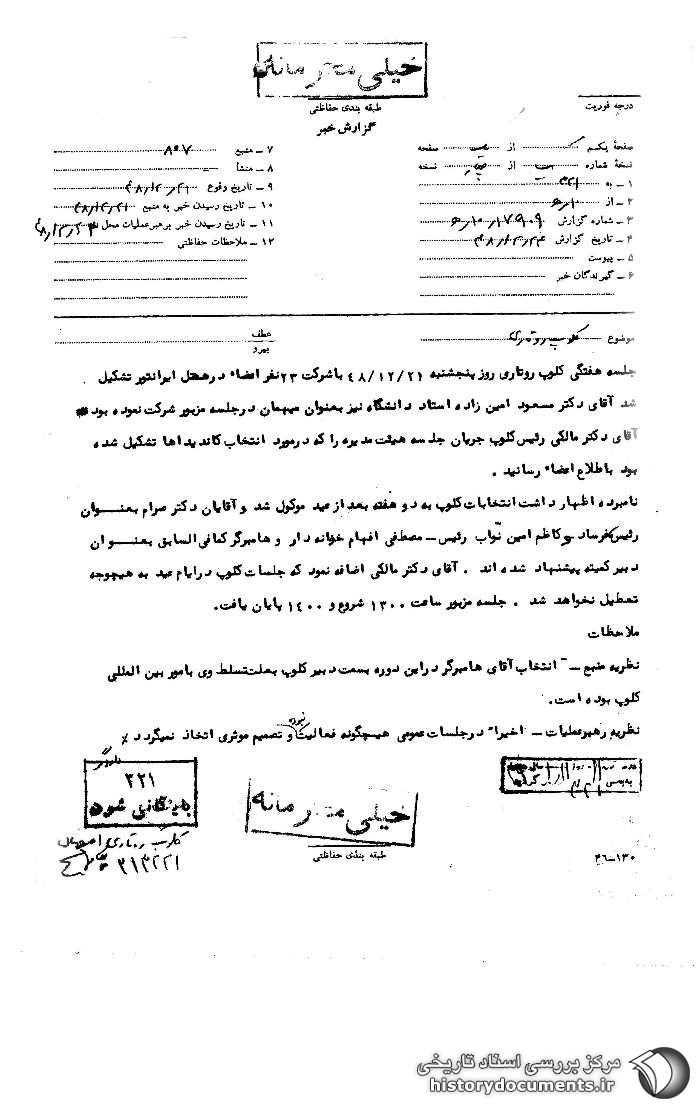 خیلی محرمانه
طبقه بندی حفاظتی
گزارش خبر
درجه فوریت
صفحهٔ یکم از صفحه
نسخهٔ شماره از نسخه
۱ ـ به ۳۲۱
۲ ـ از ۱۰ ه‍
۳ ـ شماره گزارش ۱۷۹۰۹ / ۱۰ ه‍
۴ ـ تاریخ گزارش
۵ ـ پیوست
۶ ـ گیرندگان خبر
۷ ـ منبع ۸۰۷
۸ ـ منشأ
۹ ـ تاریخ وقوع ۴۸/۱۲/۲۱
۱۰ ـ تاریخ رسیدن خبر به منبع ۴۸/۱۲/۲۱
۱۱ ـ تاریخ رسیدن خبر برهبر عملیات محل ۴۸/۱۲/۲۳
۱۲ ـ ملاحظات حفاظتی
موضوع کلوپ روتاری
عطف
پیرو
جلسه هفتگی کلوپ روتاری روز پنجشنبه ۴۸/۱۲/۲۱ با شرکت ۲۳ نفر اعضاء در هتل ایرانتور تشکیل
شد آقای دکتر مسعود امین زاده استاد دانشگاه نیز بعنوان میهمان در جلسه مزبور شرکت نموده بود
آقای دکتر مالکی رئیس کلوپ جریان جلسه هیئت مدیره را که در مورد انتخاب کاندیداها تشکیل شده
بود باطلاع اعضاء رسانید .
نامبرده اظهار داشت انتخابات کلوپ به دو هفته بعد از عید موکول شد و آقایان دکتر صرام بعنـــوان
رئیس کاظم امین نواب رئیس ـ مصطفی افهام خزانه دار و هامبرگر کمافی السابق بعنـــوان
دبیر کمیته پیشنهاد شده اند . آقای دکتر مالکی اضافه نمود که جلسات کلوپ در ایام عید به هیچوجه
تعطیل نخواهد شد . جلسه مزبور ساعت ۱۳۰۰ شروع و ۱۴۰۰ پایان یافت.
ملاحظات
نظریه منبع ـ انتخاب آقای هامبرگر در این دوره بسمت دبیر کلوپ بعلت تسلط وی بامور بین المللی
کلوپ بوده است.
نظریه رهبر عملیات ـ اخیراً در جلسات عمومی هیچگونه فعالیت نبوده و تصمیم موثری اتخاذ نمیگردد
۳۲۱
بایگانی شود
کلوپ روتاری
۳۱۳۲۲۱
خیلی محرمانه
طبقه بندی حفاظتی
۳۶-۱۳۰
مرکز بررسی اسناد تاریخی
historydocuments.ir